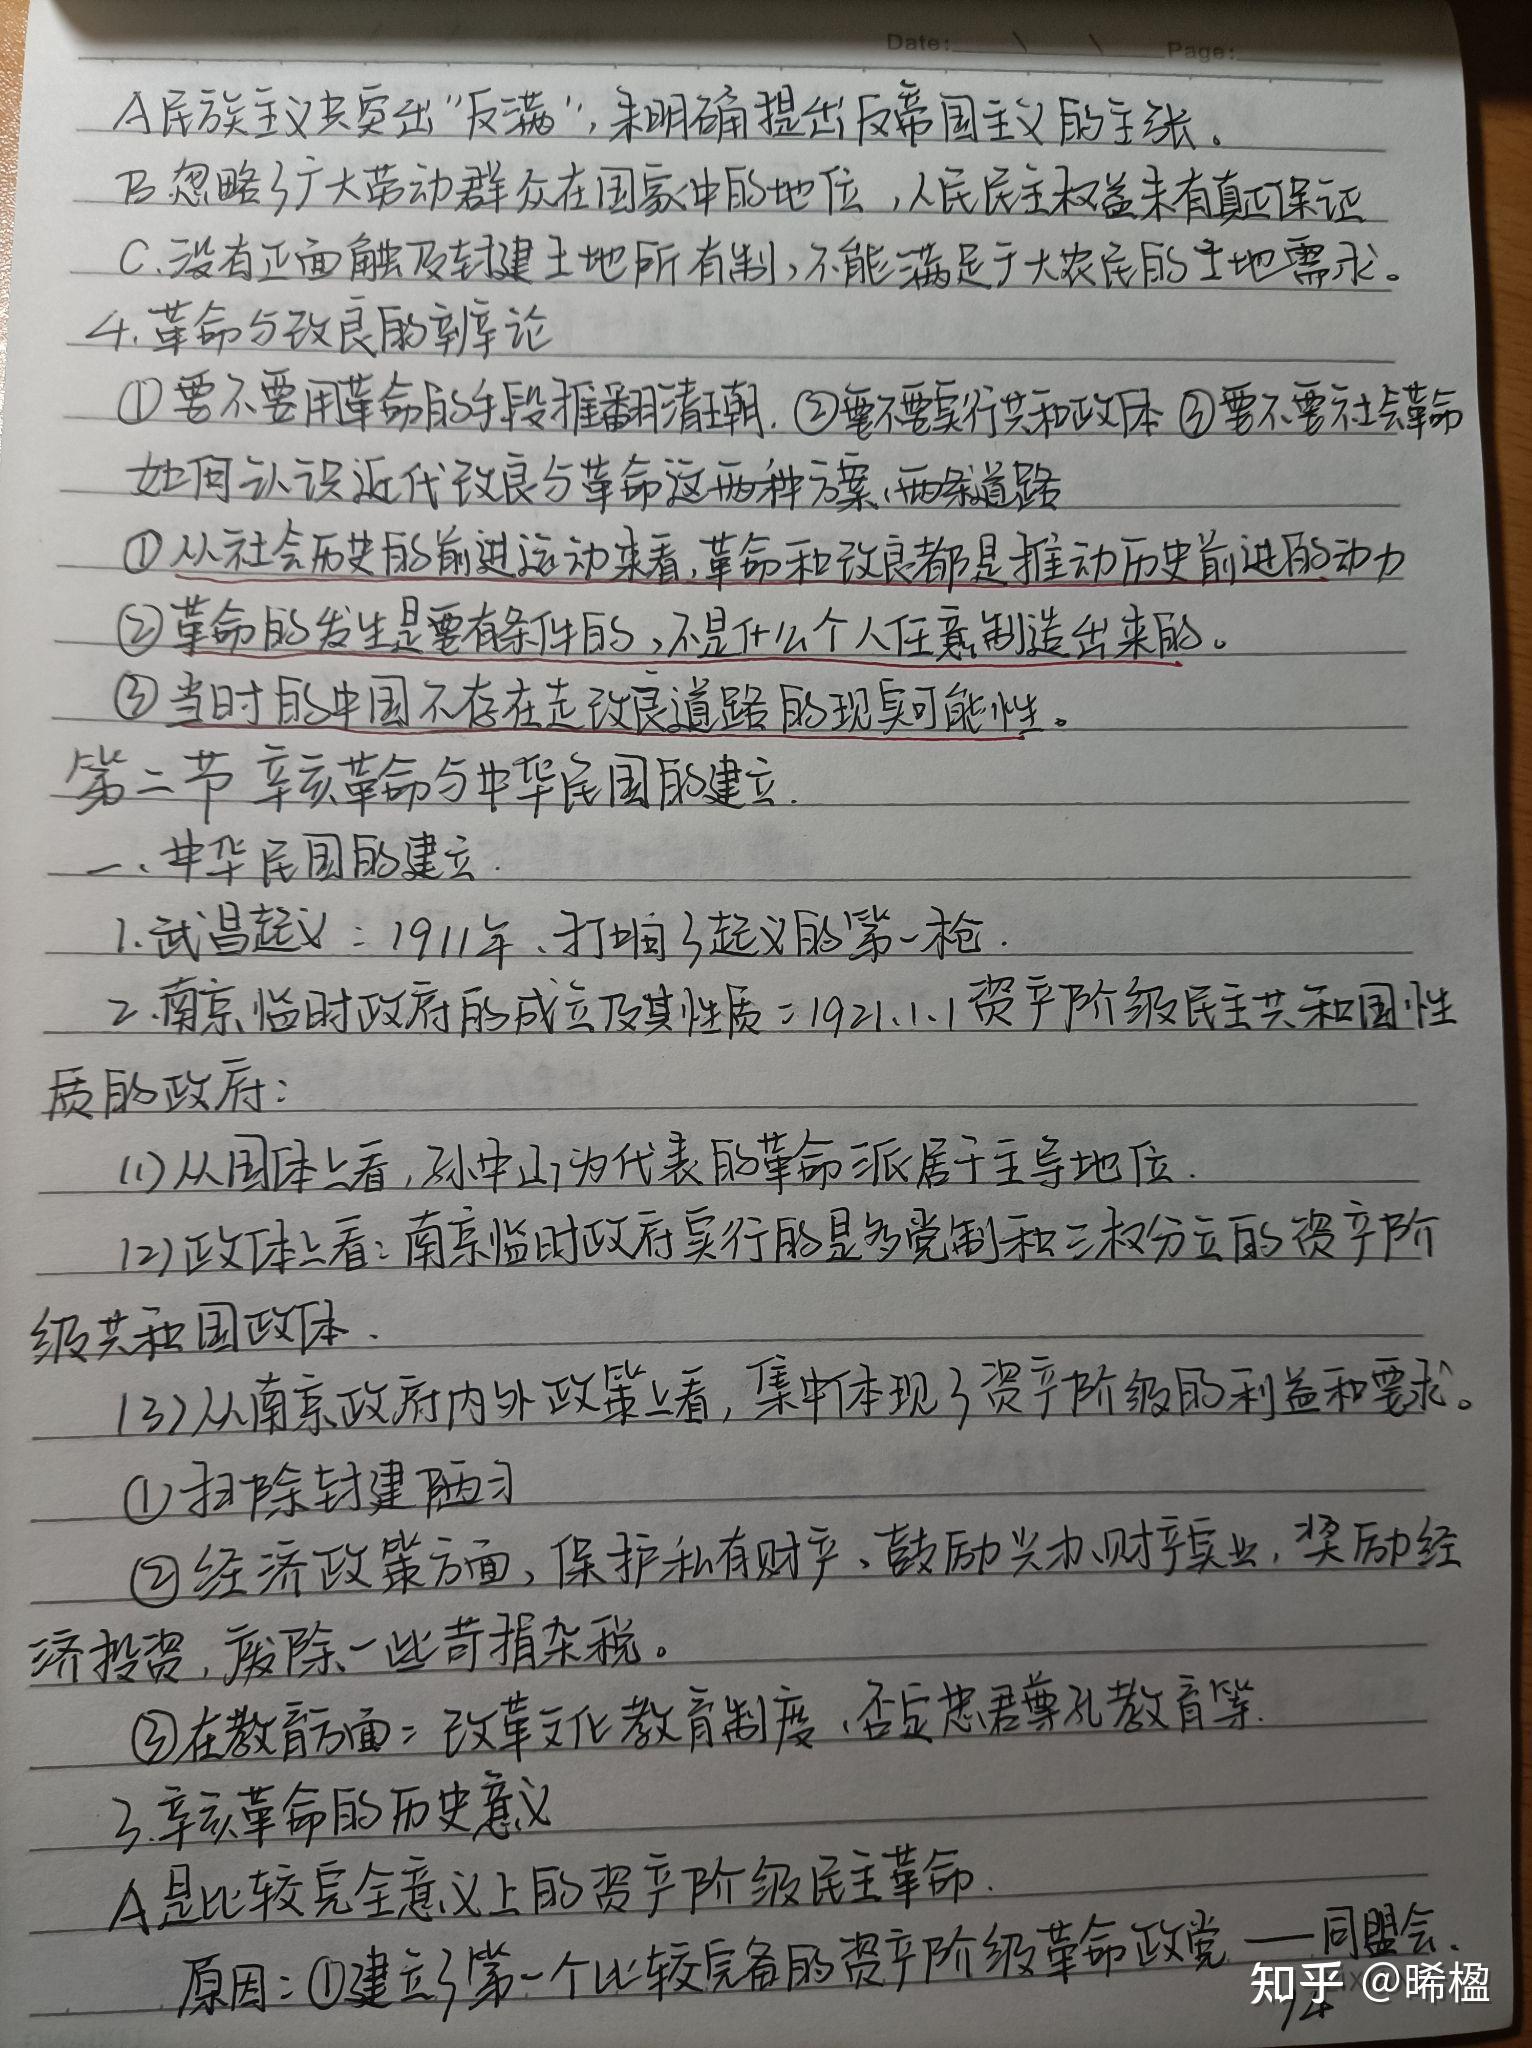 Date: Page:
A民族主义共突出“反满”，未明确提出反帝国主义的主张。
B.忽略了广大劳动群众在国家中的地位，人民民主权益未有真正保证
C.没有正面触及封建土地所有制，不能满足广大农民的土地需求。
4.革命与改良的辨论
①要不要用革命的手段推翻清王朝.②要不要实行共和政体③要不要社会革命
如何认识近代改良与革命这两种方案、两条道路
①从社会历史的前进运动来看，革命和改良都是推动历史前进的动力
②革命的发生是要有条件的，不是什么个人任意制造出来的。
③当时的中国不存在走改良道路的现实可能性。
第二节 辛亥革命与中华民国的建立.
一、中华民国的建立.
1.武昌起义：1911年、打响了起义的第一枪.
2.南京临时政府的成立及其性质：1921.1.1资产阶级民主共和国性
质的政府：
(1)从国体上看，孙中山为代表的革命派居于主导地位.
(2)政体上看：南京临时政府实行的是多党制和三权分立的资产阶
级共和国政体.
(3)从南京政府内外政策上看，集中体现了资产阶级的利益和要求。
①扫除封建陋习
②经济政策方面，保护私有财产、鼓励兴办财产实业，奖励经
济投资，废除一些苛捐杂税。
③在教育方面：改革文化教育制度，否定忠君尊孔教育等.
3.辛亥革命的历史意义
A是比较完全意义上的资产阶级民主革命.
原因：①建立了第一个比较完备的资产阶级革命政党——同盟会.
知乎 @晞楹
14